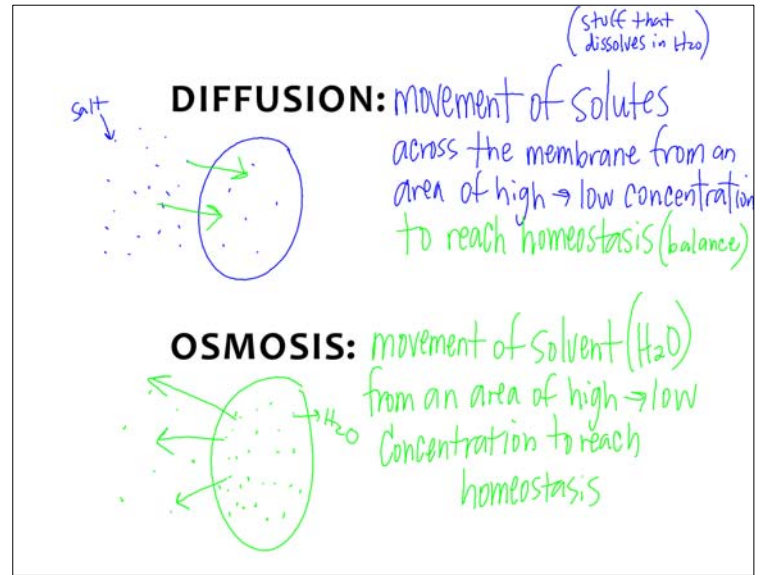 (stuff that
dissolves in H₂O)
salt
DIFFUSION: movement of solutes
across the membrane from an
area of high → low concentration
to reach homeostasis (balance)
OSMOSIS: movement of solvent (H₂O)
from an area of high → low
concentration to reach
homeostasis
H₂O